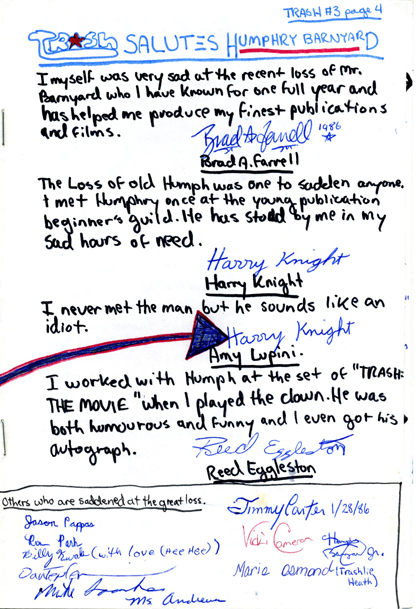 TRASH #3 page 4
TRASH SALUTES HUMPHRY BARNYARD
I myself was very sad at the recent loss of Mr.
Barnyard who I have known for one full year and
has helped me produce my finest publications
and films.
Brad A Farrell 1986
Brad A. Farrell
The Loss of old Humph was one to sadden anyone.
I met Humphry once at the young publication
beginner's guild. He has stood by me in my
sad hours of need.
Harry Knight
Harry Knight
I never met the man, but he sounds like an
idiot.
Harry Knight
Amy Lupini.
I worked with Humph at the set of "TRASH:
THE MOVIE" when I played the clown. He was
both humourous and funny and I even got his
autograph.
Reed Eggleston
Reed Eggleston
Others who are saddened at the great loss.
Jason Pappas
Park
Billy (with love (Hee Hee))
Mike
Ms. Andrews
Jimmy Carter 1/28/86
Vicki Cameron
Jr.
Marie Osmond (Trashlie
Heath)